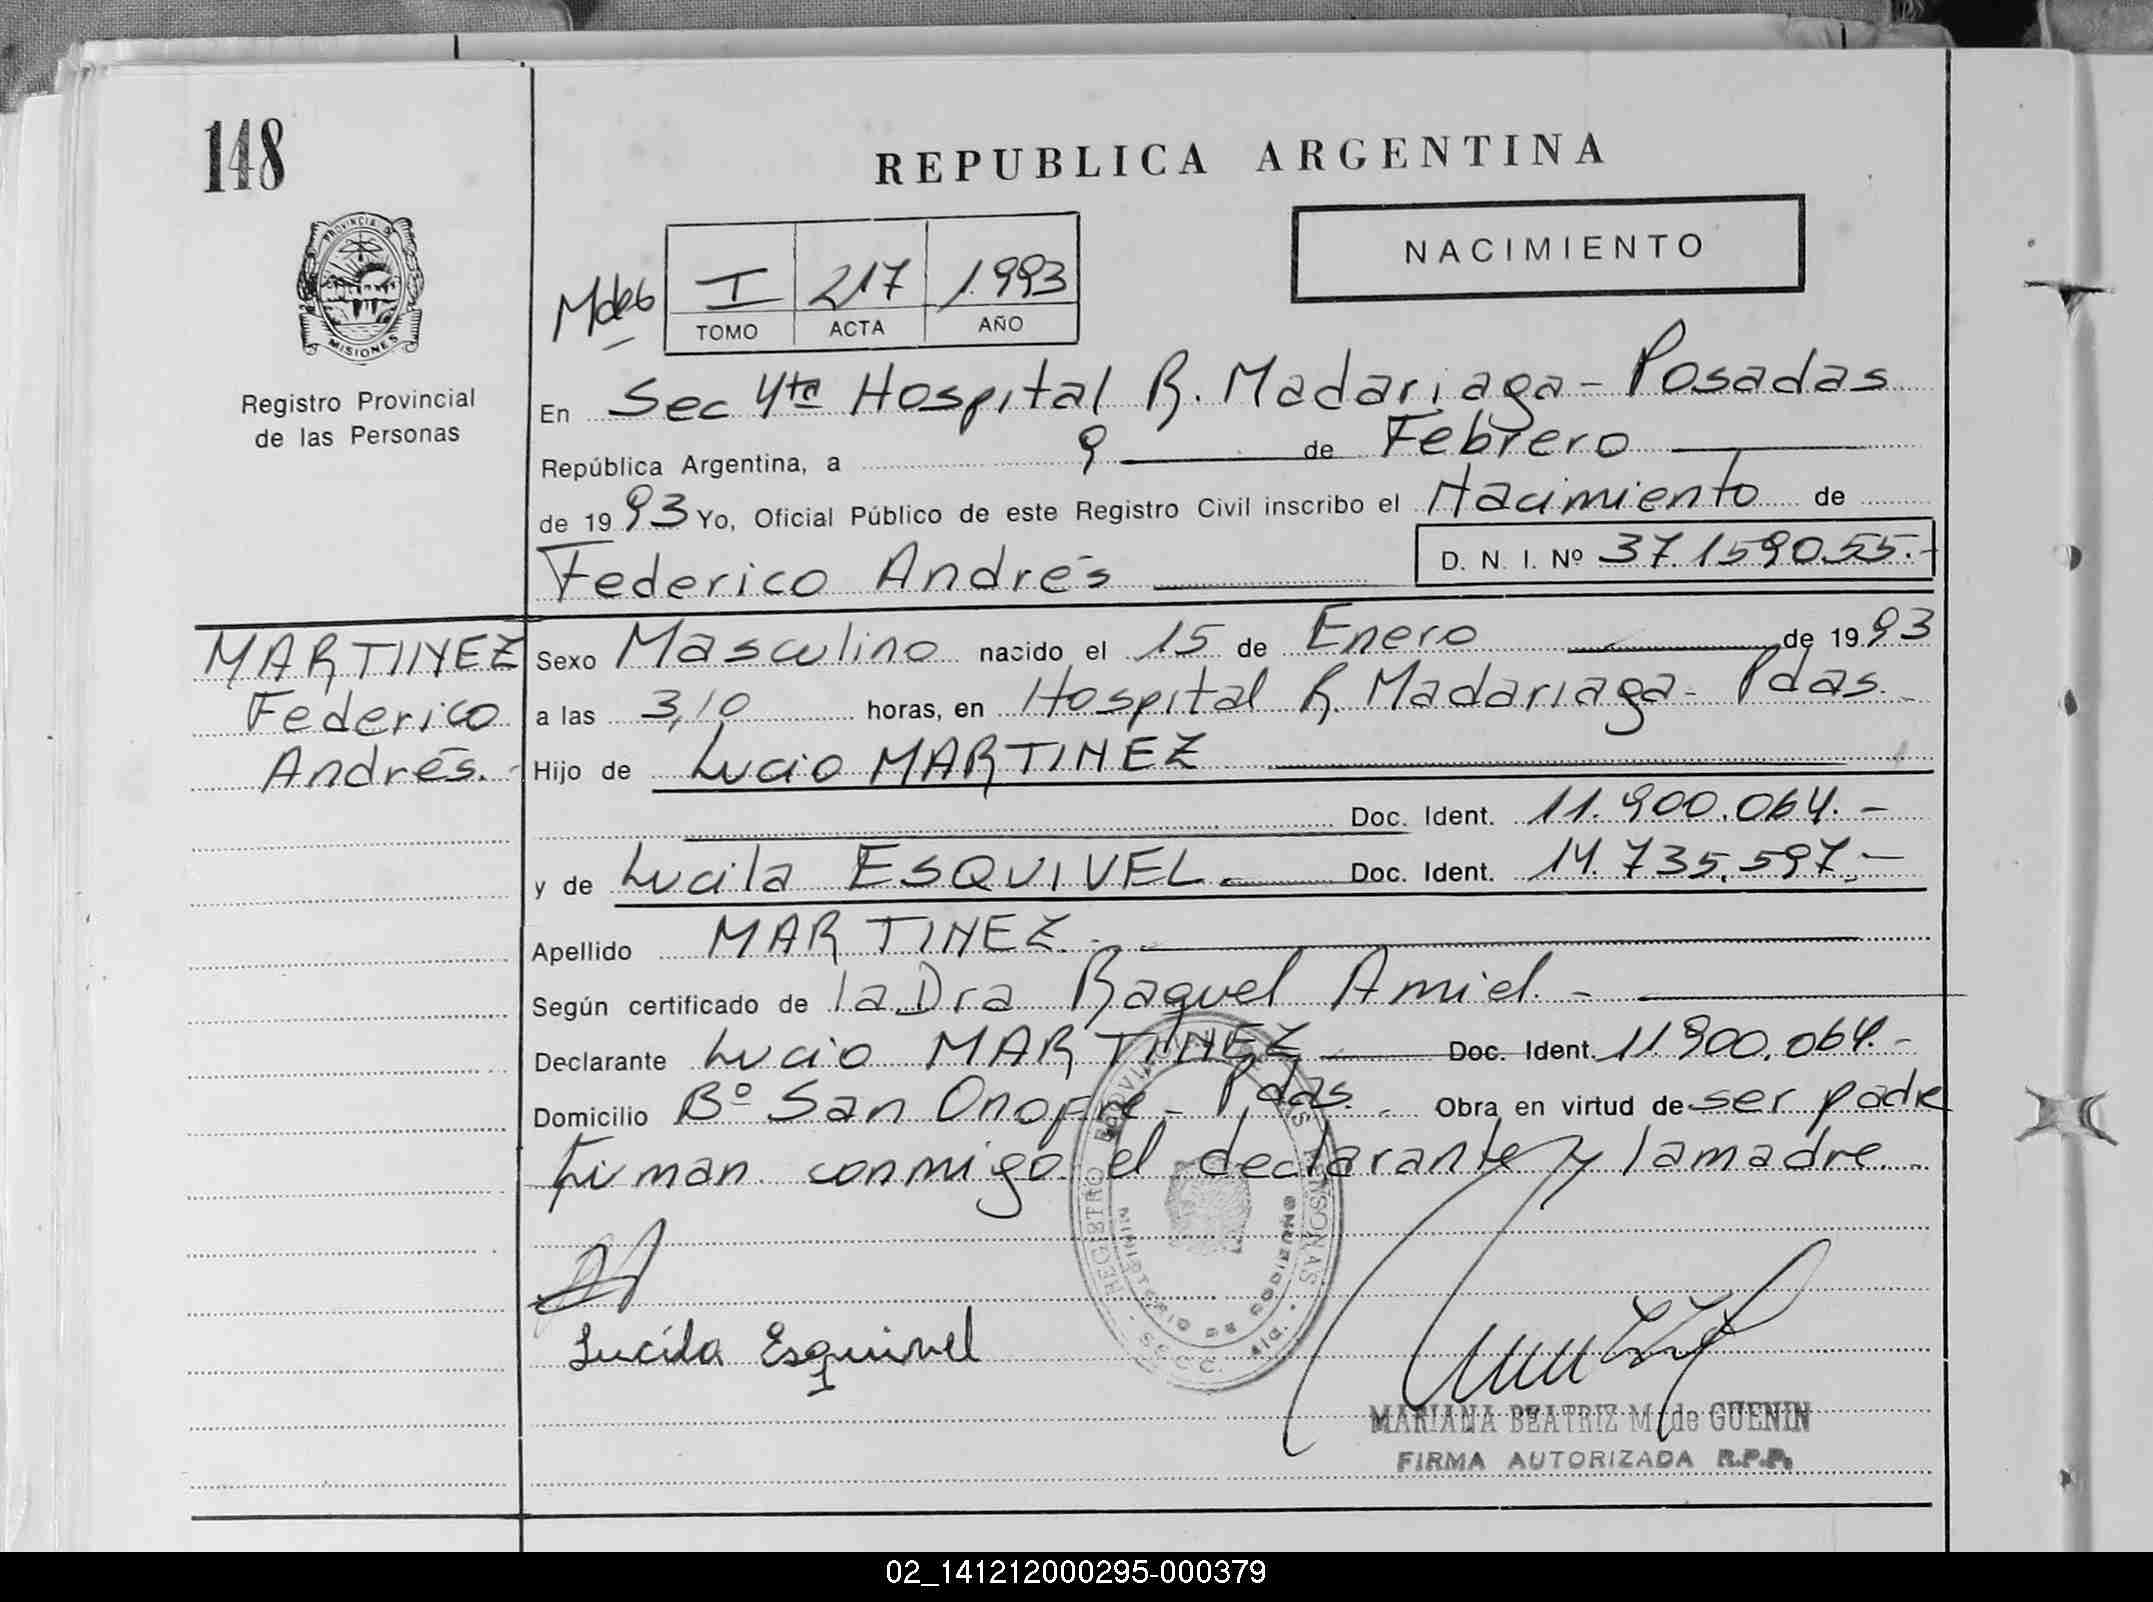 148
REPUBLICA ARGENTINA
NACIMIENTO
I 217 1.993
TOMO ACTA AÑO
PROVINCIA D
MISIONES
Registro Provincial
de las Personas
En Sec 4ta Hospital R. Madariaga - Posadas
República Argentina, a 9 de Febrero
de 1993 Yo, Oficial Público de este Registro Civil inscribo el Nacimiento de
Federico Andrés D. N. I. Nº 37.159.055.-
MARTINEZ
Federico
Andrés.-
Sexo Masculino nacido el 15 de Enero de 1993
a las 3,10 horas, en Hospital R. Madariaga - Pdas.-
Hijo de Lucio MARTINEZ
Doc. Ident. 11.900.064.-
y de Lucila ESQUIVEL.- Doc. Ident. 14.735.597.-
Apellido MARTINEZ.-
Según certificado de la Dra Raquel Amiel.-
Declarante Lucio MARTINEZ Doc. Ident. 11.900.064.-
Domicilio Bº San Onofre - Pdas.- Obra en virtud de ser padre
Firman conmigo el declarante y la madre.-
Lucila Esquivel
MARIANA BEATRIZ M. de GUENIN
FIRMA AUTORIZADA R.P.P.
02_141212000295-000379